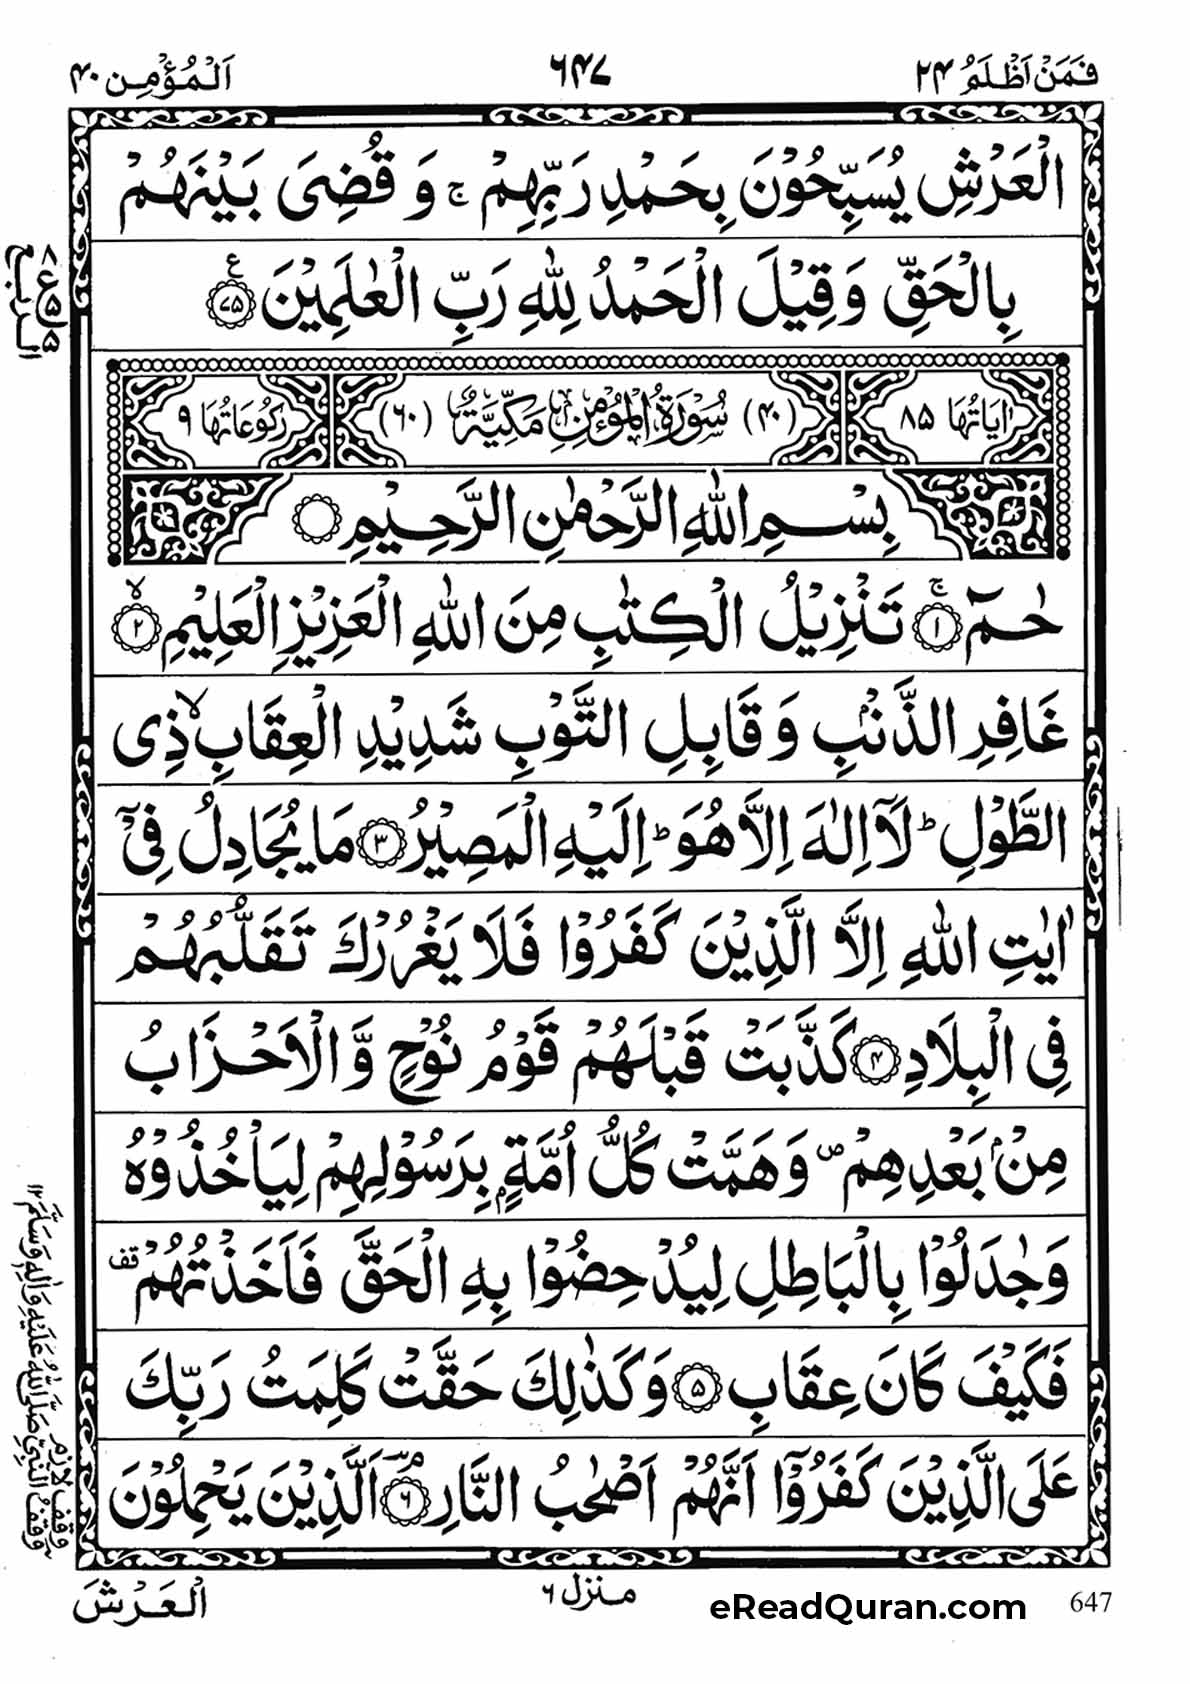 فَمَنْ اَظْلَمُ ۲۴
۶۴۷
اَلْمُؤْمِن ۴۰
الْعَرْشِ يُسَبِّحُوْنَ بِحَمْدِ رَبِّهِمْ ۚ وَ قُضِیَ بَيْنَهُمْ
بِالْحَقِّ وَ قِيْلَ الْحَمْدُ لِلّٰهِ رَبِّ الْعٰلَمِيْنَ ﴿۷۵﴾ ع
۸
ع
۵
۵
الربع
اٰيَاتُهَا ۸۵
(۴۰) سُوْرَةُ الْمُؤْمِنِ مَكِّيَّةٌ (۶۰)
رُكُوْعَاتُهَا ۹
بِسْمِ اللّٰهِ الرَّحْمٰنِ الرَّحِيْمِ
حٰمٓ ﴿۱﴾ ۚ تَنْزِيْلُ الْكِتٰبِ مِنَ اللّٰهِ الْعَزِيْزِ الْعَلِيْمِ ﴿۲﴾ ۙ
غَافِرِ الذَّنْۢبِ وَ قَابِلِ التَّوْبِ شَدِيْدِ الْعِقَابِ ۙ ذِی
الطَّوْلِ ؕ لَاۤ اِلٰهَ اِلَّا هُوَ ؕ اِلَيْهِ الْمَصِيْرُ ﴿۳﴾ مَا يُجَادِلُ فِیْۤ
اٰيٰتِ اللّٰهِ اِلَّا الَّذِيْنَ كَفَرُوْا فَلَا يَغْرُرْكَ تَقَلُّبُهُمْ
فِی الْبِلَادِ ﴿۴﴾ كَذَّبَتْ قَبْلَهُمْ قَوْمُ نُوْحٍ وَّ الْاَحْزَابُ
مِنْۢ بَعْدِهِمْ ۪ وَ هَمَّتْ كُلُّ اُمَّةٍۭ بِرَسُوْلِهِمْ لِيَاْخُذُوْهُ
وَ جٰدَلُوْا بِالْبَاطِلِ لِيُدْحِضُوْا بِهِ الْحَقَّ فَاَخَذْتُهُمْ قف
فَكَيْفَ كَانَ عِقَابِ ﴿۵﴾ وَ كَذٰلِكَ حَقَّتْ كَلِمَتُ رَبِّكَ
عَلَى الَّذِيْنَ كَفَرُوْۤا اَنَّهُمْ اَصْحٰبُ النَّارِ ﴿۶﴾ ۘ اَلَّذِيْنَ يَحْمِلُوْنَ
وقف لازم
وَقْفُ النَّبِیِّ صَلَّى اللّٰهُ عَلَيْهِ وَاٰلِهٖ وَسَلَّمَ ۱۲
الْعَرْشَ
منزل ۶
eReadQuran.com
647